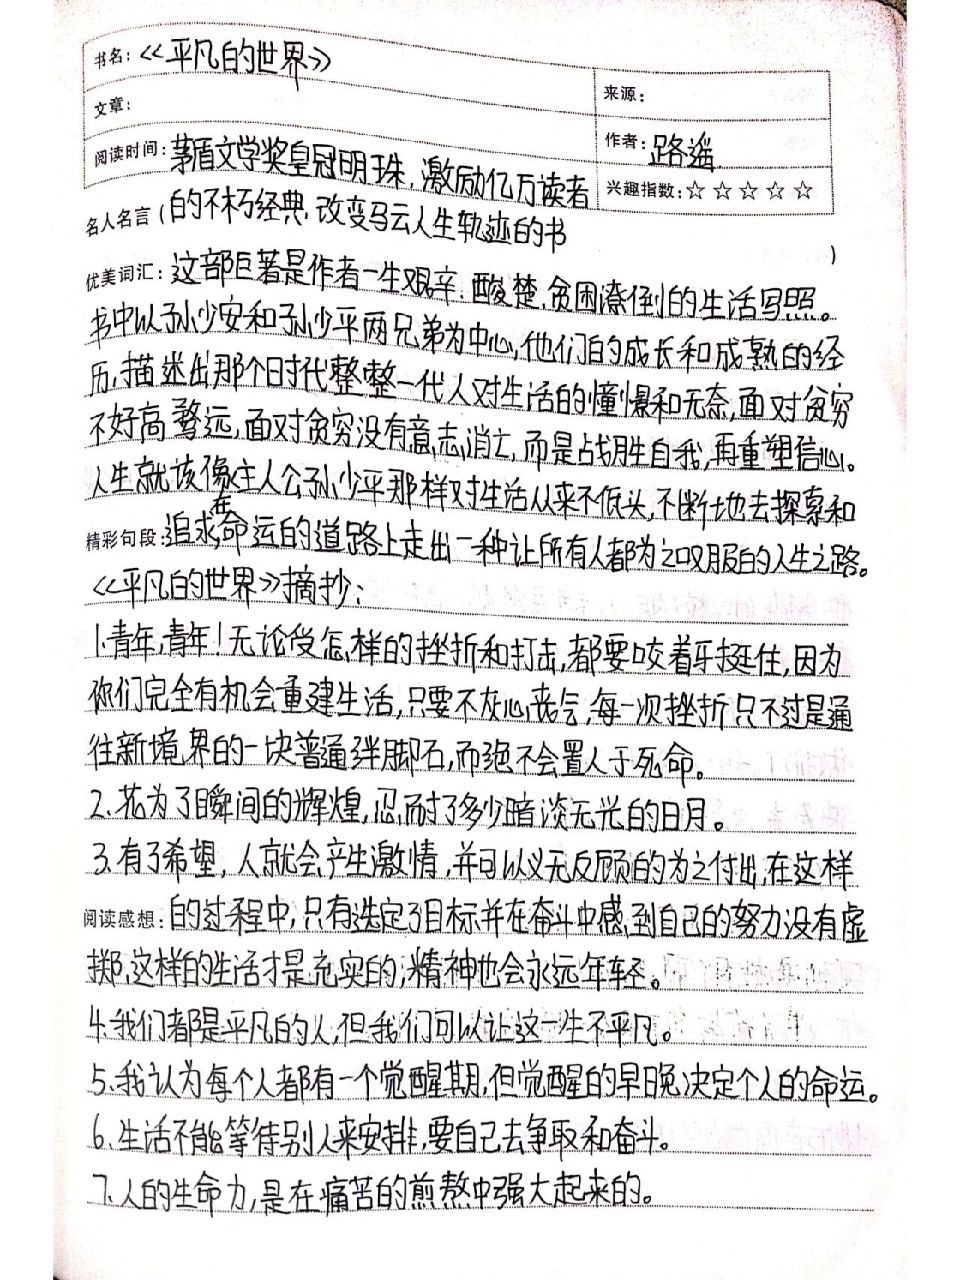 书名：《平凡的世界》
文章：
来源：
阅读时间：茅盾文学奖皇冠明珠，激励亿万读者
作者：路遥
兴趣指数：☆ ☆ ☆ ☆ ☆
名人名言（的不朽经典，改变马云人生轨迹的书）
优美词汇：这部巨著是作者一生艰辛、酸楚、贫困潦倒的生活写照。
书中以孙少安和孙少平两兄弟为中心，他们的成长和成熟的经
历，描述出那个时代整整一代人对生活的憧憬和无奈，面对贫穷
不好高骛远，面对贫穷没有意志消亡，而是战胜自我，再重塑信心。
人生就该像主人公孙少平那样对生活从来不低头，不断地去探索和
精彩句段：追求，在命运的道路上走出一种让所有人都为之叹服的人生之路。
《平凡的世界》摘抄：
1.青年，青年！无论受怎样的挫折和打击，都要咬着牙挺住，因为
你们完全有机会重建生活，只要不灰心丧气，每一次挫折只不过是通
往新境界的一块普通绊脚石，而绝不会置人于死命。
2、花为了瞬间的辉煌，忍耐了多少暗淡无光的日月。
3、有了希望，人就会产生激情，并可以义无反顾的为之付出，在这样
阅读感想：的过程中，只有选定了目标并在奋斗中感到自己的努力没有虚
掷，这样的生活才是充实的，精神也会永远年轻。
4、我们都是平凡的人，但我们可以让这一生不平凡。
5、我认为每个人都有一个觉醒期，但觉醒的早晚决定个人的命运。
6、生活不能等待别人来安排，要自己去争取和奋斗。
7、人的生命力，是在痛苦的煎熬中强大起来的。